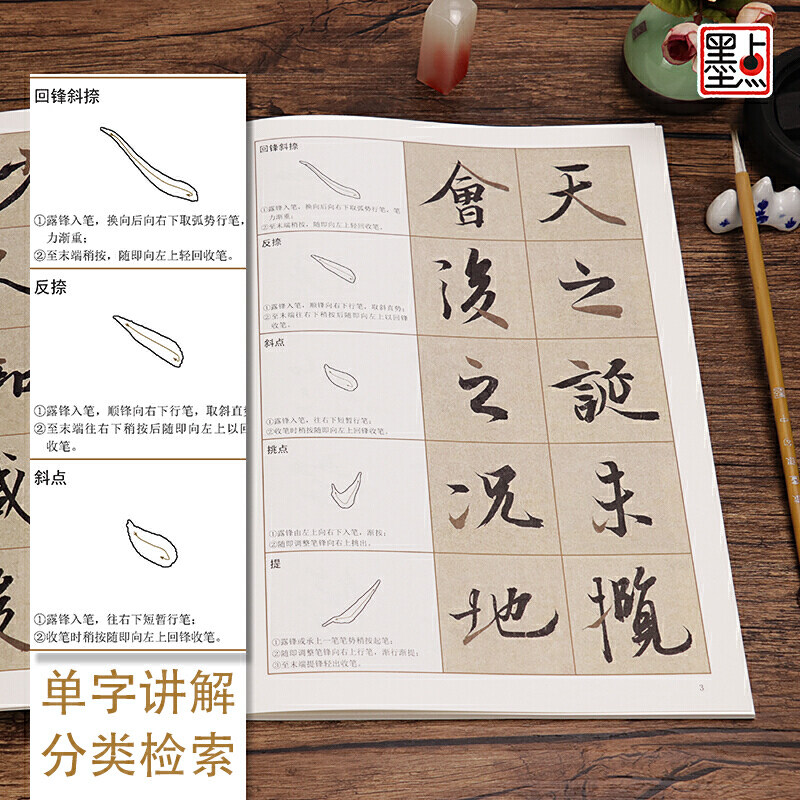 墨点
回锋斜捺
①露锋入笔，换向后向右下取弧势行笔，
力渐重；
②至末端稍按，随即向左上轻回收笔。
反捺
①露锋入笔，顺锋向右下行笔，取斜直
②至末端往右下稍按后随即向左上以回
收笔。
斜点
①露锋入笔，往右下短暂行笔；
②收笔时稍按随即向左上回锋收笔。
单字讲解
分类检索
回锋斜捺
①露锋入笔，换向后向右下取弧势行笔，笔
力渐重；
②至末端稍按，随即向左上轻回收笔。
會 天
反捺
①露锋入笔，顺锋向右下行笔，取斜直势；
②至末端往右下稍按后随即向左上以回锋
收笔。
後 之
斜点
①露锋入笔，往右下短暂行笔；
②收笔时稍按随即向左上回锋收笔。
之 誕
挑点
①露锋由左上向右下入笔，渐按；
②随即调整笔锋向右上挑出。
况 未
提
①露锋或承上一笔笔势稍按起笔；
②随即调整笔锋向右上行笔，渐行渐提；
③至末端提锋轻出收笔。
地 攬
3